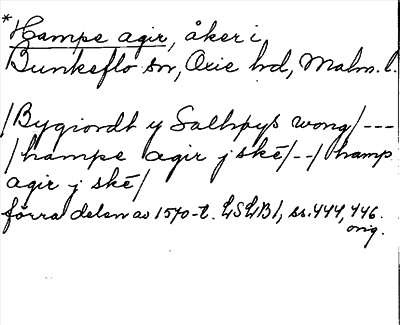 *Hampe agir, åker i
Bunkeflo sn, Oxie hd, Malm. l.
/Bygiordt y Salhøys wong/ ---
/hampe agir j skē/--/hamp
agir j skē/
förra delen av 1570-t. LSLB1, ss. 444, 446.
orig.